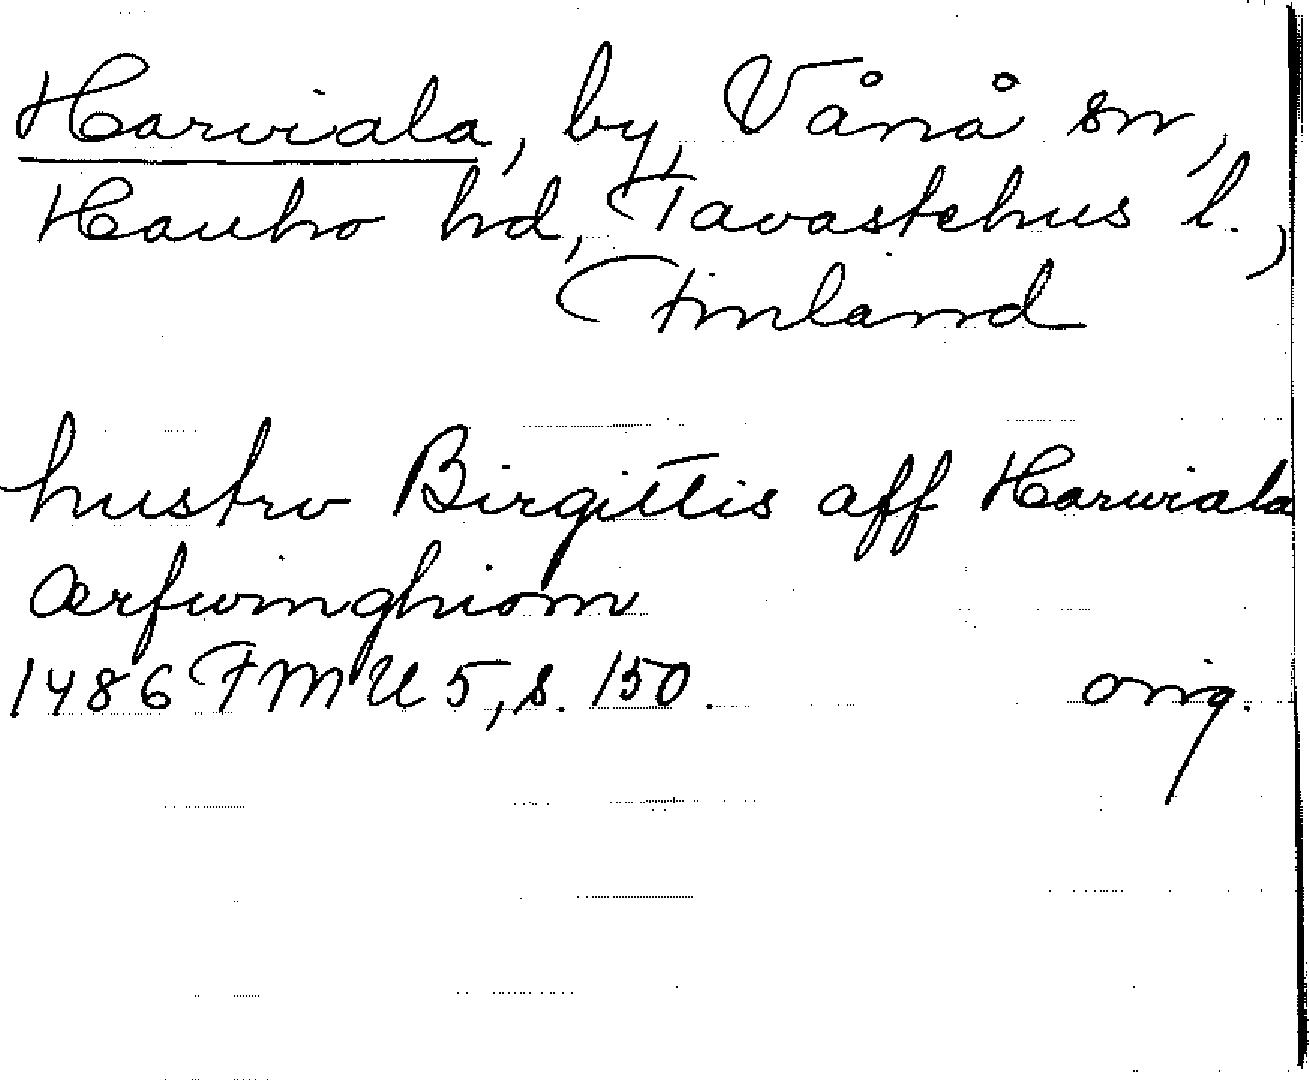 Harviala, by, Vånå sn,
Hauho hd, Tavastehus l.,
Finland
hustro Birgittis aff Harwiala
ærfwinghiom
1486 FMU 5, s. 150. orig.